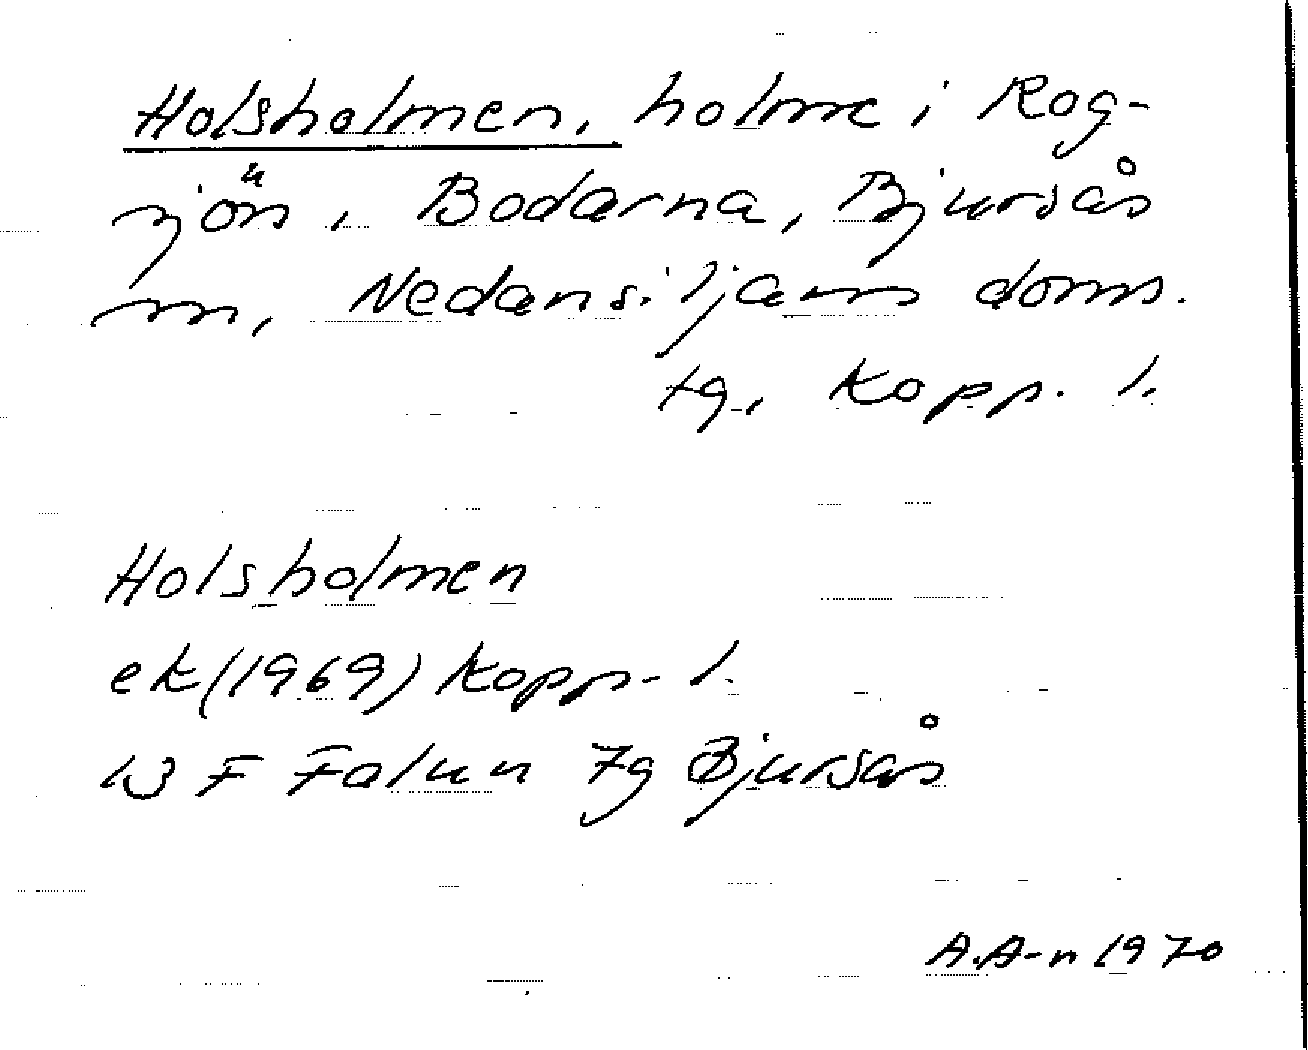 Holsholmen, holme i Rog-
sjön, Bodarna, Bjursås
sn, Nedansiljans doms.
tg, Kopp. l.
Holsholmen
ek (1969) Kopp. l.
13 F Falun 7g Bjursås
A.A-n 1970